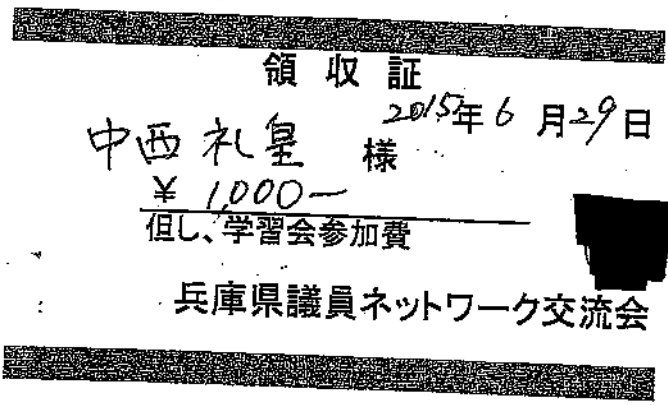 領収証
2015年6月29日
中西礼皇 様
¥ 1,000ー
但し、学習会参加費
兵庫県議員ネットワーク交流会